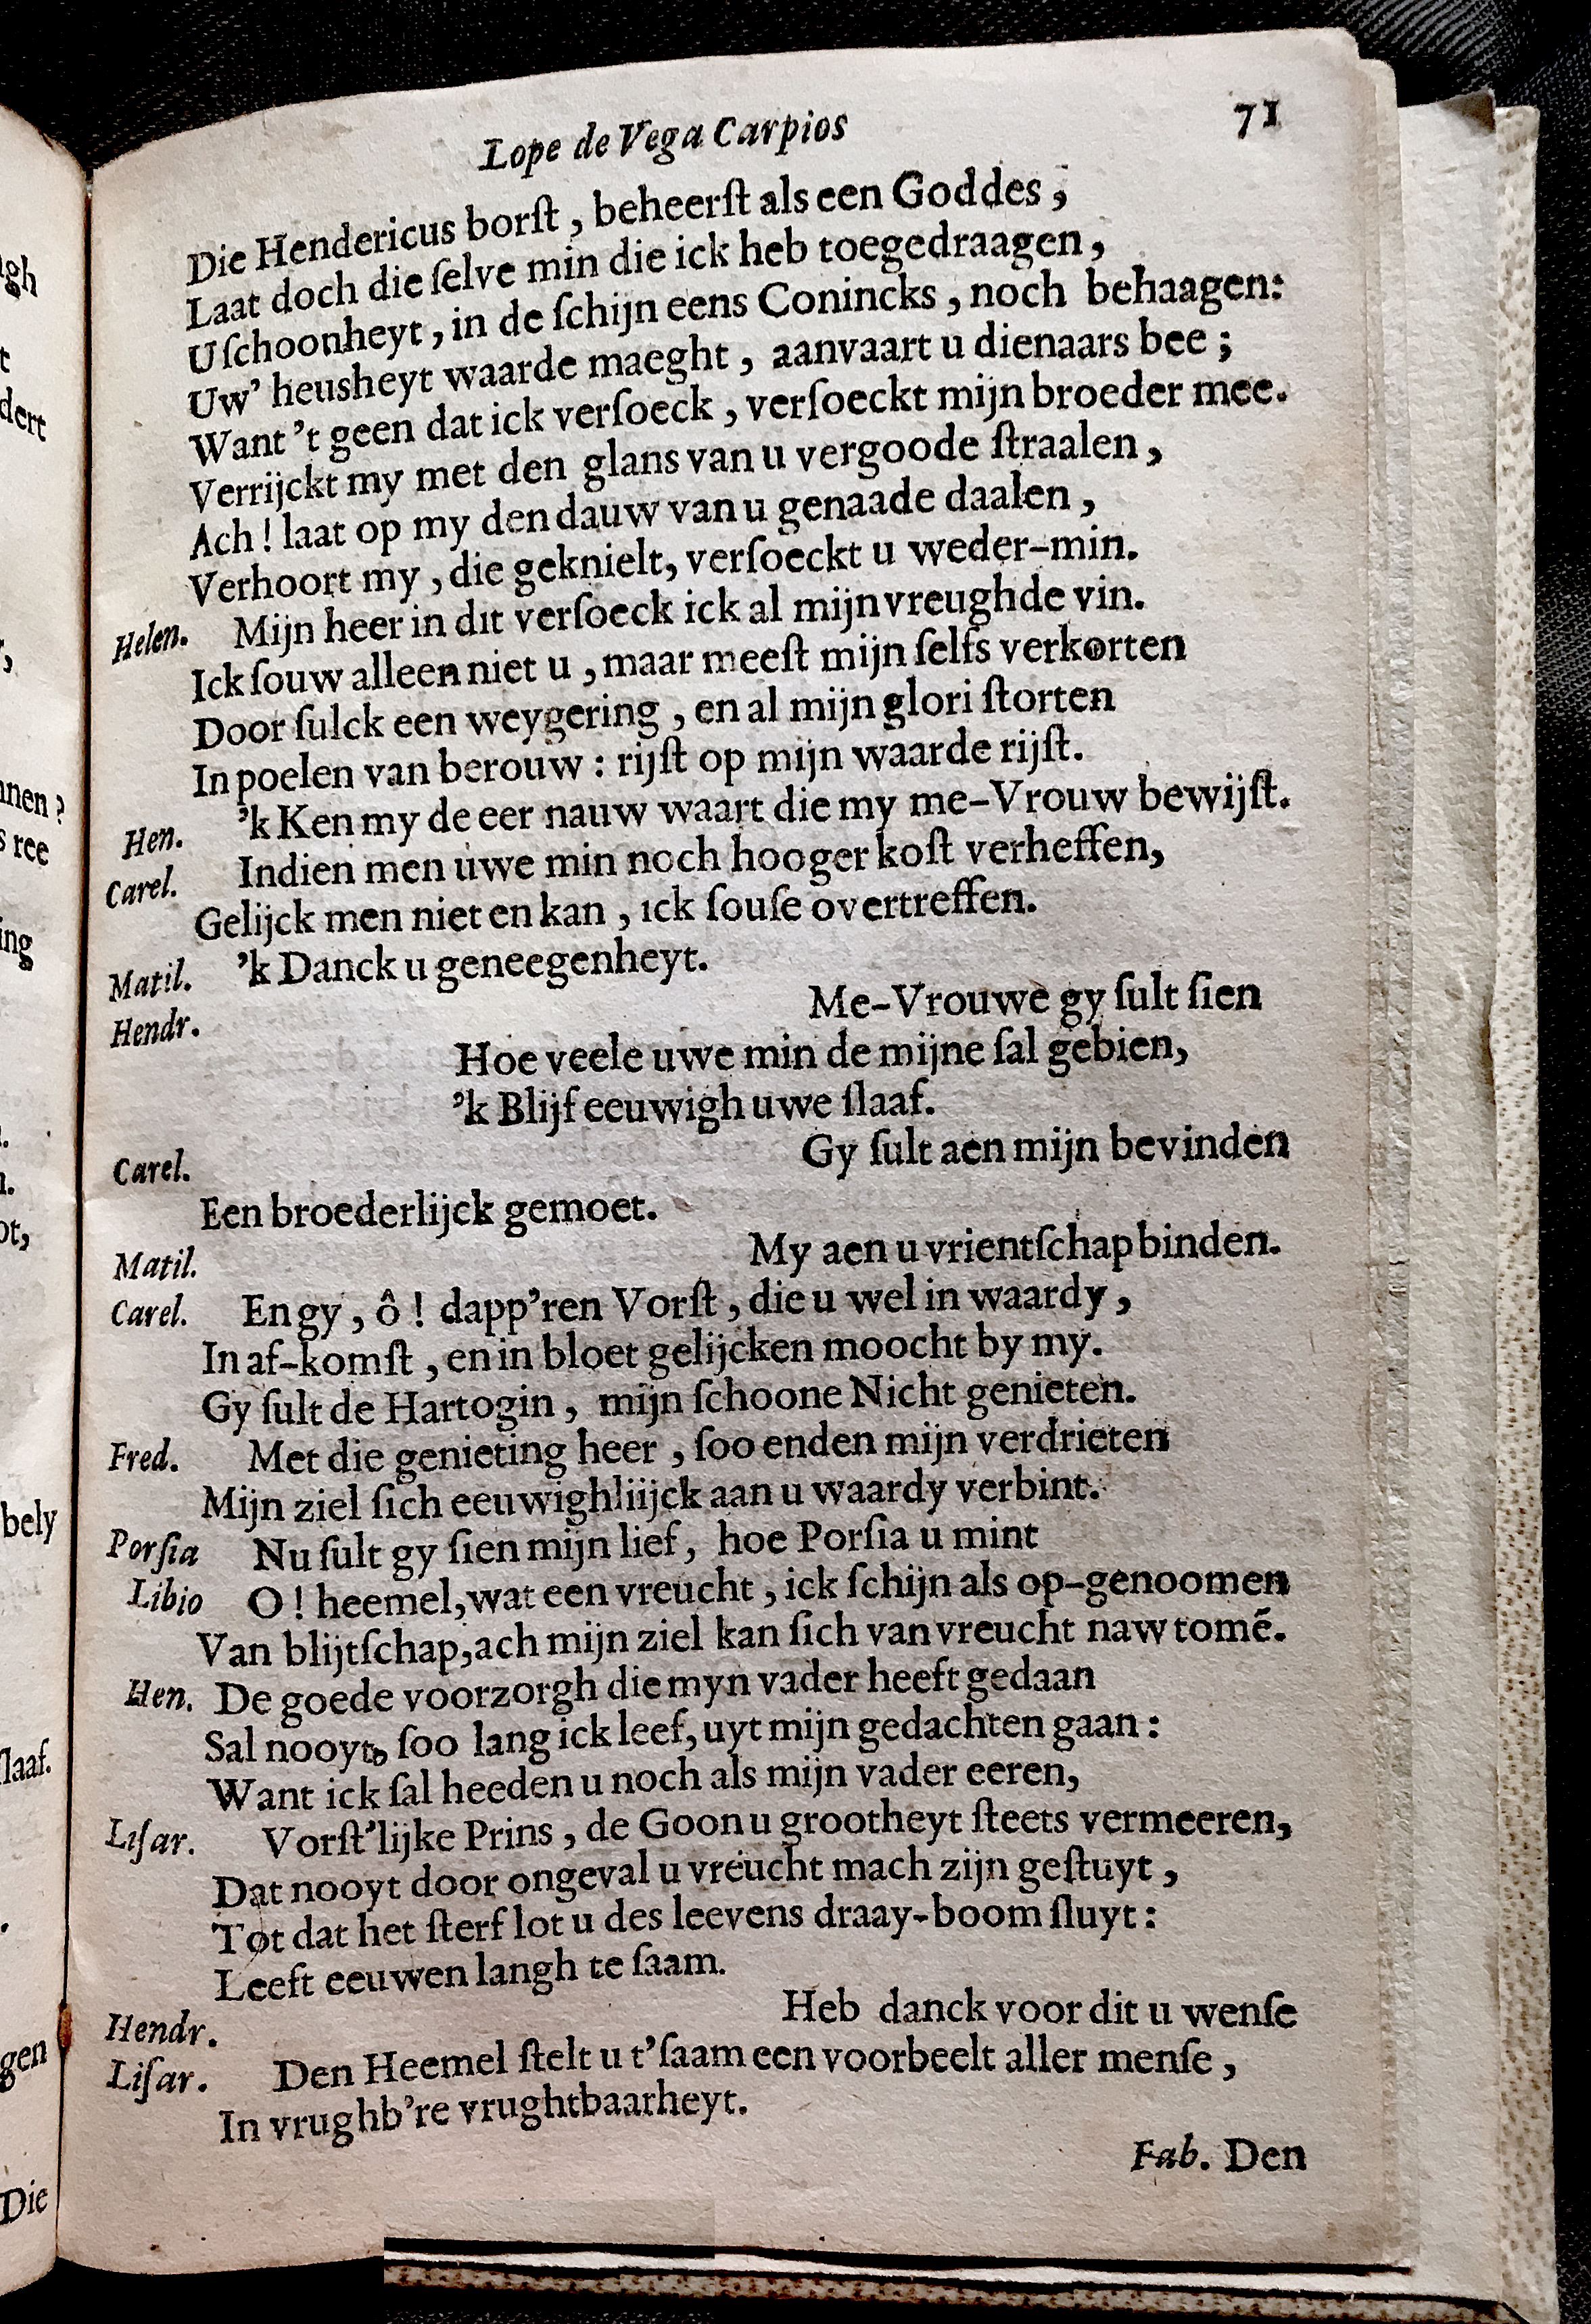 Lope de Vega Carpios 71
Die Hendericus borſt, beheerſt als een Goddes,
Laat doch die ſelve min die ick heb toegedraagen,
U ſchoonheyt, in de ſchijn eens Conincks, noch behaagen:
Uw' heusheyt waarde maeght, aanvaart u dienaars bee;
Want 't geen dat ick verſoeck, verſoeckt mijn broeder mee.
Verrijckt my met den glans van u vergoode ſtraalen,
Ach! laat op my den dauw van u genaade daalen,
Verhoort my, die geknielt, verſoeckt u weder-min.
Helen. Mijn heer in dit verſoeck ick al mijn vreughde vin.
Ick ſouw alleen niet u, maar meeſt mijn ſelfs verkorten
Door ſulck een weygering, en al mijn glori ſtorten
In poelen van berouw: rijſt op mijn waarde rijſt.
Hen. 'k Ken my de eer nauw waart die my me-Vrouw bewijſt.
Carel. Indien men uwe min noch hooger koſt verheffen,
Gelijck men niet en kan, ick ſouſe overtreffen.
Matil. 'k Danck u geneegenheyt.
Hendr. Me-Vrouwe gy ſult ſien
Hoe veele uwe min de mijne ſal gebien,
'k Blijf eeuwigh uwe ſlaaf.
Carel. Gy ſult aen mijn bevinden
Een broederlijck gemoet.
Matil. My aen u vrientſchap binden.
Carel. En gy, ô! dapp'ren Vorſt, die u wel in waardy,
In af-komſt, en in bloet gelijcken moocht by my.
Gy ſult de Hartogin, mijn ſchoone Nicht genieten.
Fred. Met die genieting heer, ſoo enden mijn verdrieten
Mijn ziel ſich eeuwighliijck aan u waardy verbint.
Porſia Nu ſult gy ſien mijn lief, hoe Porſia u mint
Libio O! heemel, wat een vreucht, ick ſchijn als op-genoomen
Van blijtſchap, ach mijn ziel kan ſich van vreucht naw tomẽ.
Hen. De goede voorzorgh die myn vader heeft gedaan
Sal nooyt, ſoo lang ick leef, uyt mijn gedachten gaan:
Want ick ſal heeden u noch als mijn vader eeren,
Liſar. Vorſt'lijke Prins, de Goon u grootheyt ſteets vermeeren,
Dat nooyt door ongeval u vreucht mach zijn geſtuyt,
Tot dat het ſterf lot u des leevens draay-boom ſluyt:
Leeft eeuwen langh te ſaam.
Hendr. Heb danck voor dit u wenſe
Liſar. Den Heemel ſtelt u t'ſaam een voorbeelt aller menſe,
In vrughb're vrughtbaarheyt.
Fab. Den
gh
t
dert
nnen?
s ree
ing
ot,
bely
ſlaaf.
gen
Die